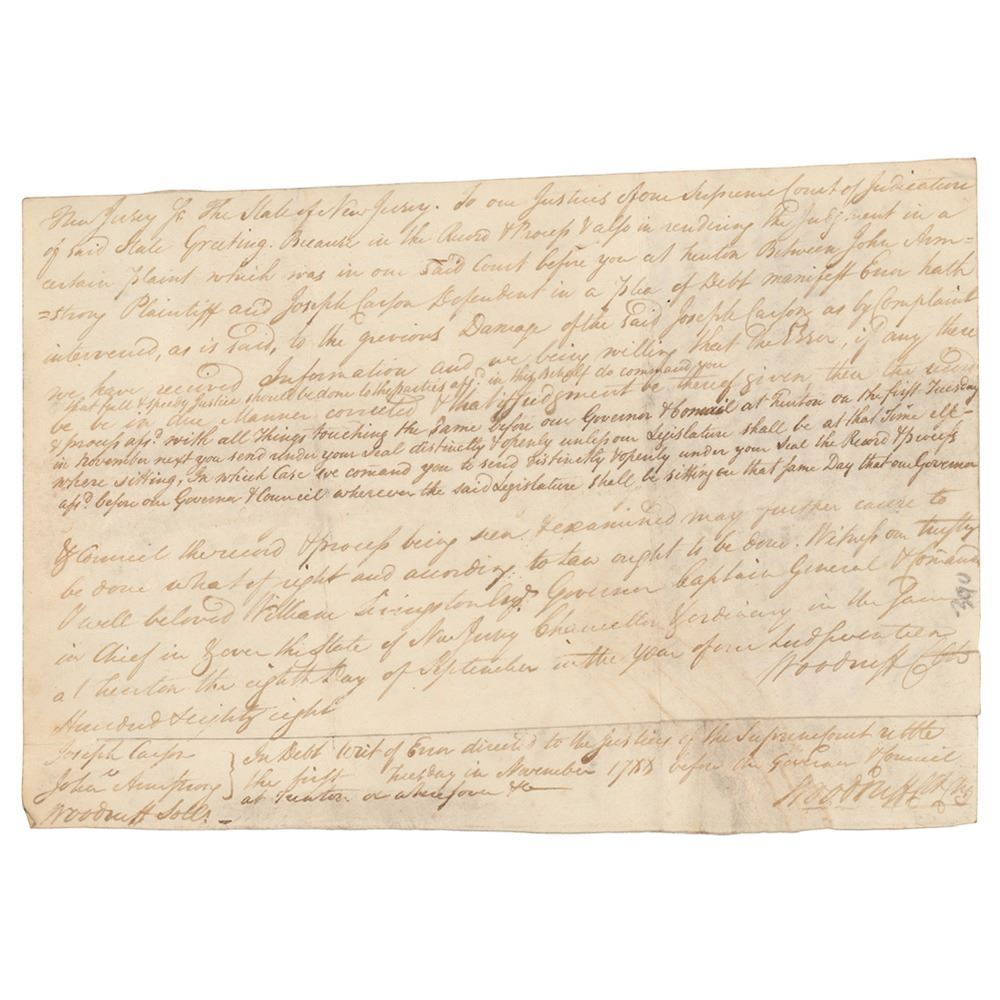 New Jersey Ss The State of New Jersey. To our Justices of our Supreme Court of Judication
of said State Greeting. Because in the Record & Process & also in rendering the Judgment in a
certain plaint which was in our said Court before you at Trenton Between John Arm=
=strong Plaintiff and Joseph Carson Defendent in a Plea of Debt manifest Error hath
intervened, as is said, to the grevious Damage of the said Joseph Carson as by Complaint
we have received Information and we being willing that the Error, if any there
that full & speedy Justice should be done to the parties afsd. in this Behalf do command you
be be in due Manner corrected & that if Judgment be thereof given then the record
& process afsd. with all things touching the same before our Governor & Council at Trenton on the first Tuesday
in November next you send under your Seal distinctly & openly unless our Legislature shall be at that Time else-
where sitting, In which Case we comand you to send distinctly & openly under your Seal the Record & Process
afsd. before our Governor & Council wherever the said Legislature shall be sitting on that same Day that our Governor
& Council the record & process being seen & examined may further cause to
be done what of right and according to Law ought to be done. Witness our trusty
& well beloved William Livingston Esqr. Governor Captain General & Comand
in Chief in & over the State of New Jersey Chancellor & ordinary in the same
at Trenton the eighth Day of September in the year of our Lord seventeen
Hundred & eighty eight
Woodruff
390
Joseph Carson
John Armstrong
Woodruff Soll.
In Debt Writ of Error directed to the Justices of the Supreme Court
the first Tuesday in November 1788 before the Governor & Council
at Trenton or wheresover &c
Woodruff